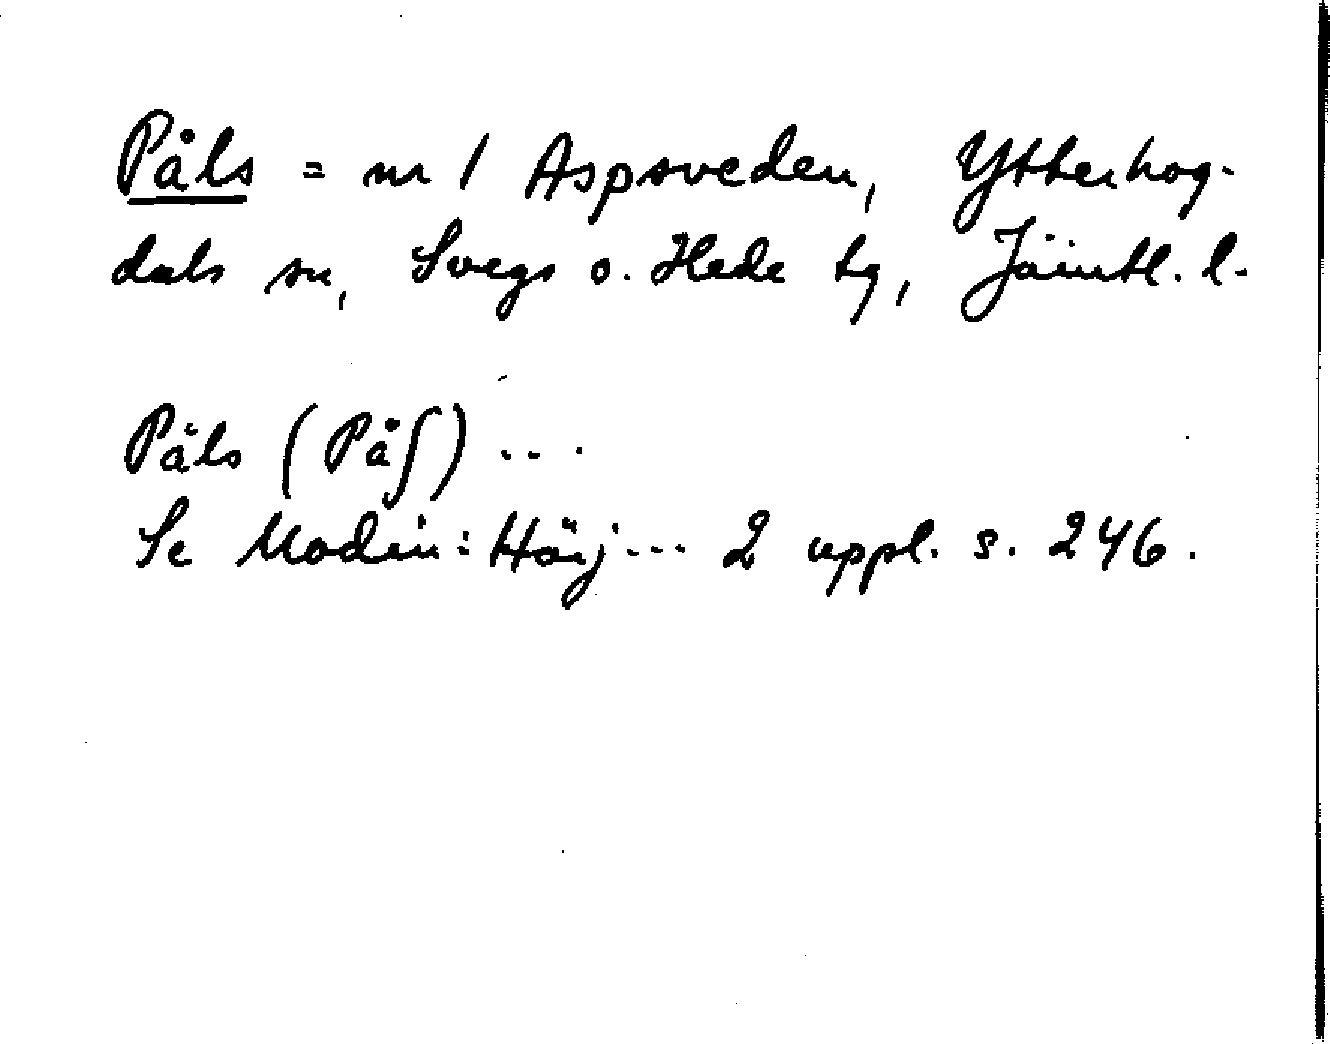 Påls = nr 1 Aspsveden, Ytterhog-
dals sn, Svegs o. Hede tg, Jämtl. l.
Påls (Påʃ) ...
Se Modin: Härj... 2 uppl. s. 246.